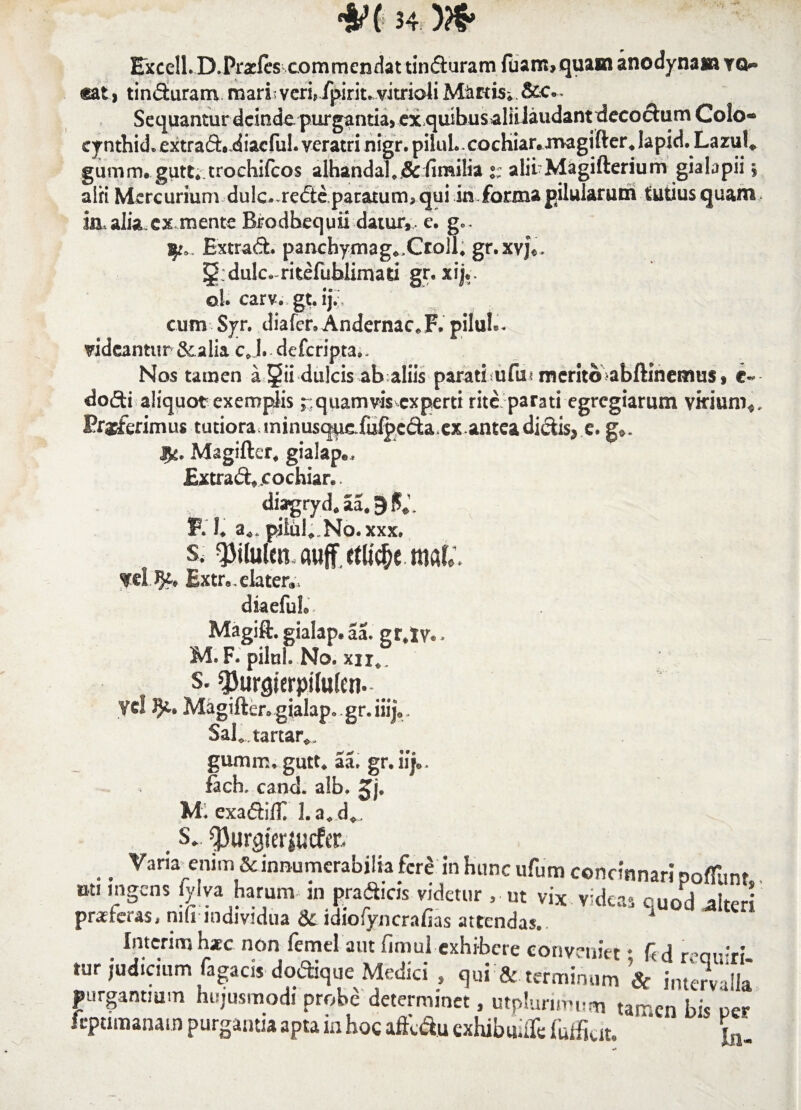 ( 34 )
Excell. D. Præses commendat tincturam suam, quam anodynam vo-
cat, tincturam mari: veri, spirit. vitrioli Martis, &c.
Sequantur deinde purgantia, ex quibus alii laudant decoctum Colo-
cynthid. extract. diacsul. veratri nigr. pilul. cochiar. magister, lapid. Lazul.
gumm. gutt. trochiscos alhandal. & similia; alii Magisterium gialapii;
alii Mercurium dulc. recte paratum, qui in forma pilularum tutius quam
in alia ex mente Brodbequii datur, e. g.
℞. Extract. panchymag. Croll. gr. xvj.
☿ dulc. rite sublimati gr. xij.
ol. carv. gt. ij.
cum Syr. diaser. Andernac. F. pilul.
videantur & alia c. l. descripta.
Nos tamen à ☿ii dulcis ab aliis parati usu merito abstinemus, e-
docti aliquot exemplis; quamvis experti rite parati egregiarum virium.
Præferimus tutiora minusque suspecta ex antea dictis, e. g.
℞. Magister. gialap.
Extract. cochiar.
diagryd. āā. ℈ß.
F. l. a. pilul. No. xxx.
S. Pilulen auff etliche mal.
vel ℞. Extr. elater.
diaesul.
Magist. gialap. āā. gr. iv.
M. F. pilul. No. xii.
S. Purgierpilulen.
vel ℞. Magister. gialap. gr. iiij.
Sal. tartar.
gumm. gutt. āā. gr. iij.
sach. cand. alb. ʒj.
M. exactiss. l. a. d.
S. Purgierzucker.
Varia enim & innumerabilia fere in hunc usum concinnari possunt,
uti ingens sylva harum in practicis videtur, ut vix videas quod alteri
præferas, nisi individua & idiosyncrasias attendas.
Interim hæc non semel aut simul exhibere conveniet; sed requiri-
tur judicium sagacis doctique Medici, qui & terminum & intervalla
purgantium hujusmodi probe determinet, utplurimum tamen bis per
septimanam purgantia apta in hoc affectu exhibuisse sufficit.
In-